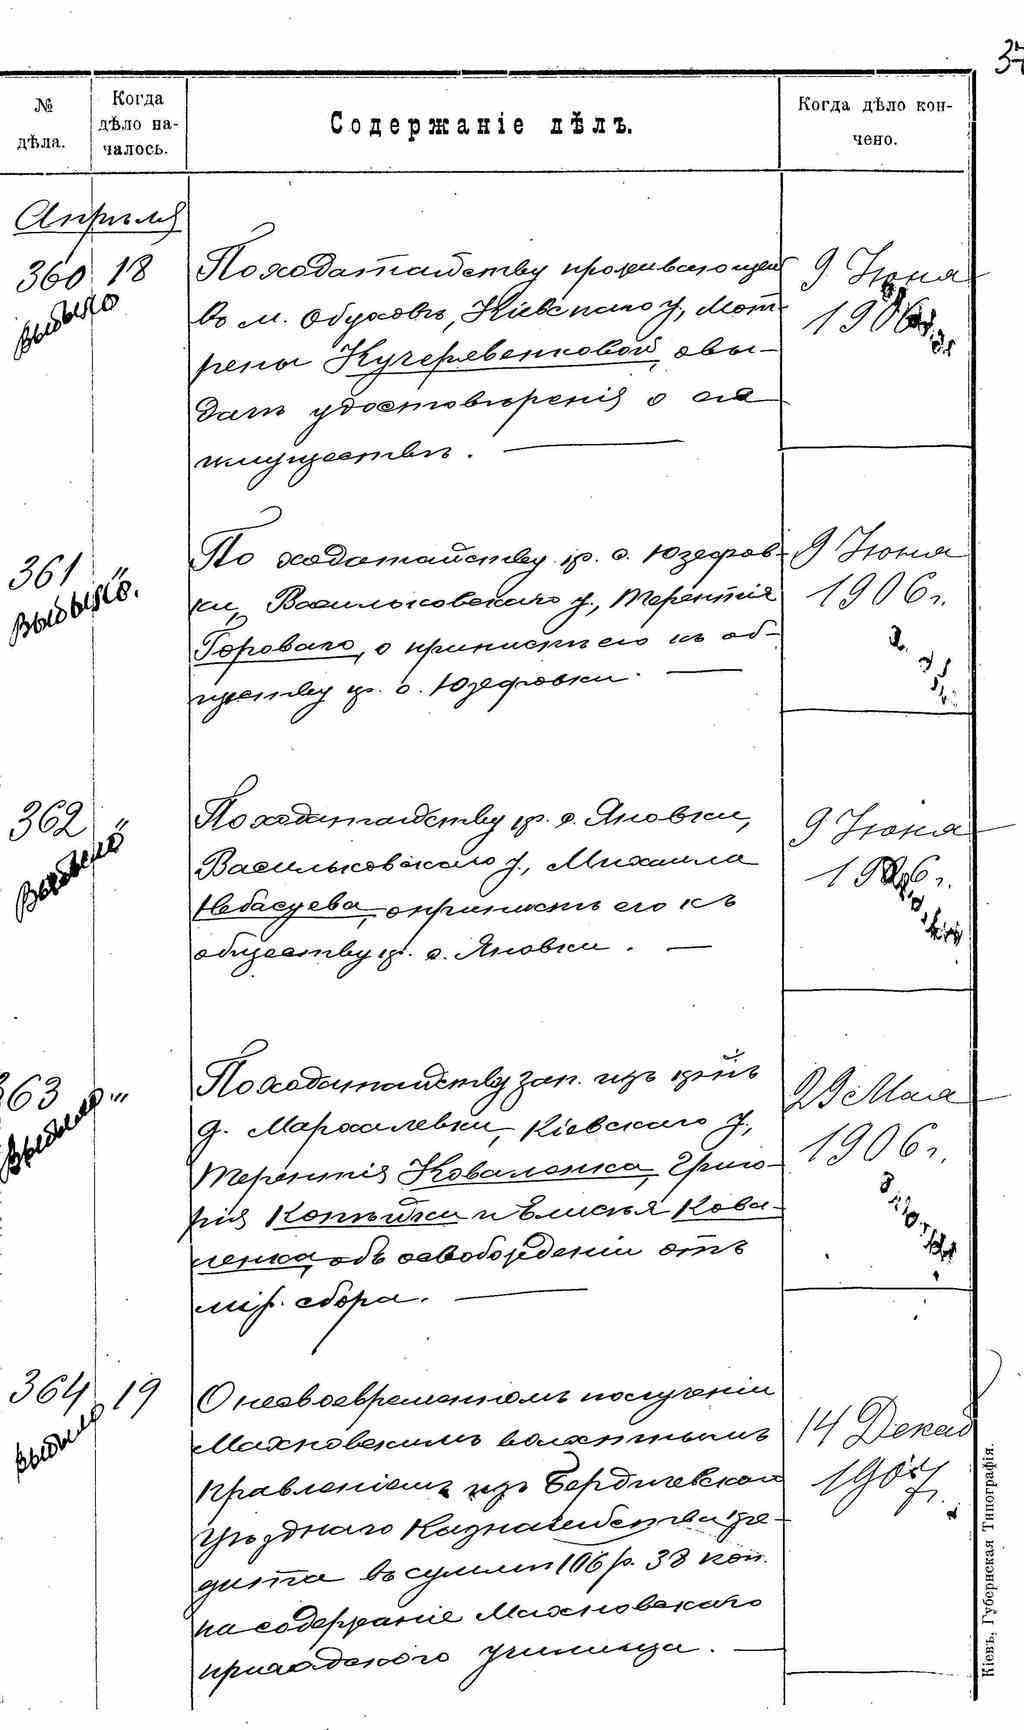 37
№ дѣла.
Когда дѣло началось.
Содержаніе дѣлъ.
Когда дѣло кончено.
Апрѣля
360 18
Выбыло
По ходатайству проживающей
въ м. Обуховѣ, Кіевскаго у, Мот-
рены Кучерявенковой, о вы-
дачѣ удостовѣренія о ея
имуществѣ.
9 Іюня
1906
361 "
Выбыло.
По ходатайству кр. с. Юзефов-
ки, Васильковскаго у., Терентія
Горового, о припискѣ его къ об-
ществу кр. с. Юзефовки.
9 Іюня
1906 г.
362 "
Выбыло
По ходатайству кр. с. Яновки,
Васильковскаго у., Михаила
Небасуева, о припискѣ его къ
обществу кр. с. Яновки.
9 Іюня
1906 г.
363 "
Выбыло
По ходатайству зап. изъ
д. Мархалевки, Кіевскаго у.,
Терентія Коваленка, Григо-
рія Копѣйки и Елисѣя Кова-
ленка, объ освобожденіи отъ
мір. сбора.
29 Мая
1906 г.
364 19
Выбыло
О несвоевременномъ полученіи
Махновскимъ волостнымъ
правленіемъ изъ Бердичевскаго
Уѣзднаго Казначейства кре-
дита въ суммѣ 106 р. 38 коп.
на содержаніе Махновскаго
приходского училища.
14 Декаб
1907 г.
Кіевъ, Губернская Типографія.